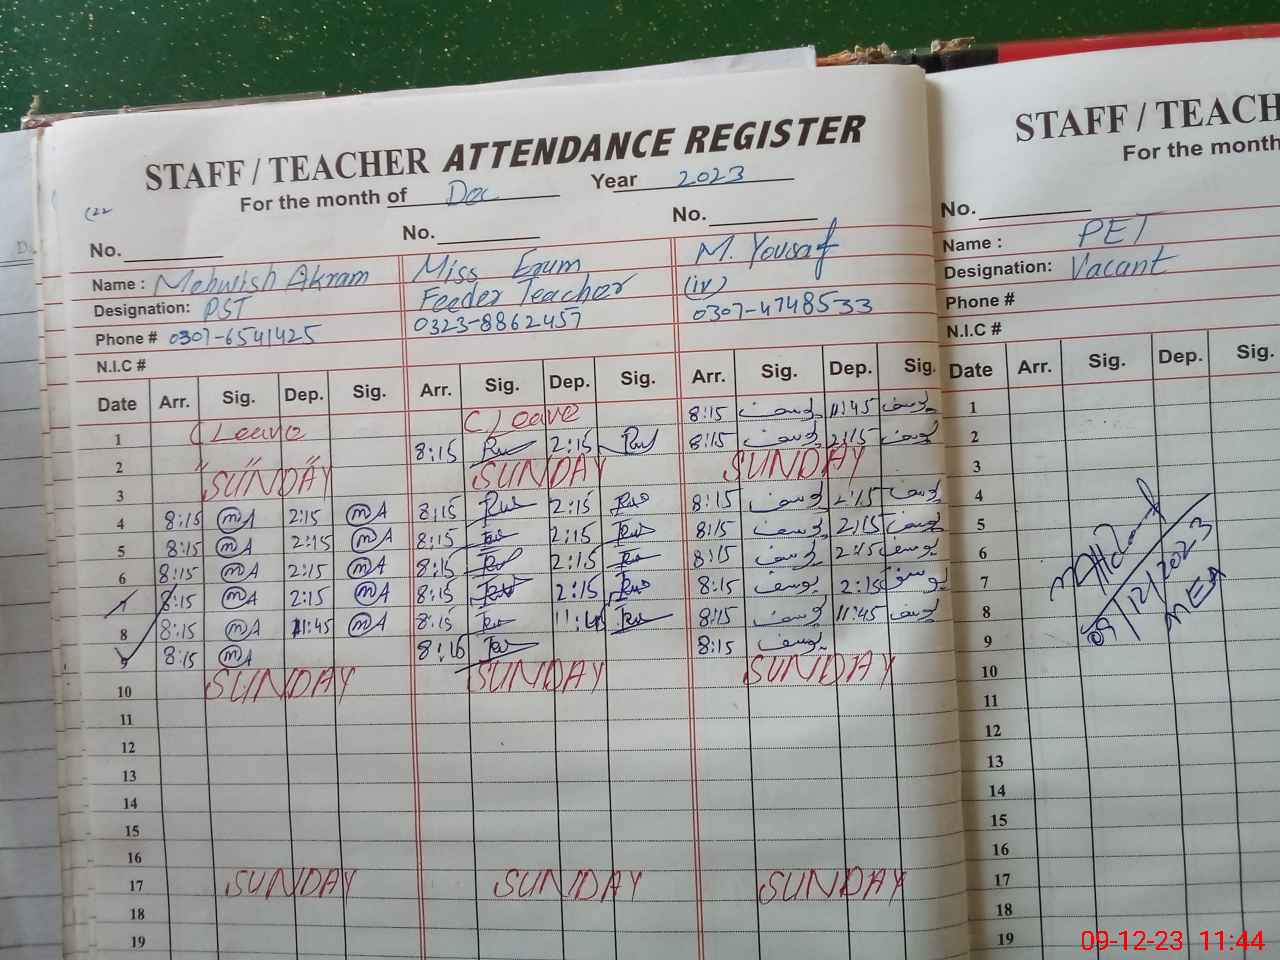 STAFF / TEACHER ATTENDANCE REGISTER
For the month of Dec Year 2023
No. No. No.
Name : Mehwish Akram Miss Erum M. Yousaf
Designation: PST Feeder Teacher (iv)
Phone # 0307-6541425 0323-8862457 0307-4748533
N.I.C #
Date Arr. Sig. Dep. Sig. Arr. Sig. Dep. Sig. Arr. Sig. Dep. Sig.
1 C Leave C Leave 8:15 یوسف 11:45 یوسف
2 " " " 8:15 2:15 8:15 یوسف 2:15 یوسف
3 SUNDAY SUNDAY SUNDAY
4 8:15 mA 2:15 mA 8:15 2:15 8:15 یوسف 2:15 یوسف
5 8:15 mA 2:15 mA 8:15 2:15 8:15 یوسف 2:15 یوسف
6 8:15 mA 2:15 mA 8:15 2:15 8:15 یوسف 2:15 یوسف
7 8:15 mA 2:15 mA 8:15 2:15 8:15 یوسف 2:15 یوسف
8 8:15 mA 11:45 mA 8:15 11:45 8:15 یوسف 11:45 یوسف
9 8:15 mA 8:16 8:15 یوسف
10 SUNDAY SUNDAY SUNDAY
11
12
13
14
15
16
17 SUNDAY SUNDAY SUNDAY
18
19
STAFF / TEACH
For the month
No.
Name : PET
Designation: Vacant
Phone #
N.I.C #
Date Arr. Sig. Dep. Sig.
1
2
3
4
5
6
7
8
9
10
11
12
13
14
15
16
17
18
19
09/12/2023
MEA
09-12-23 11:44